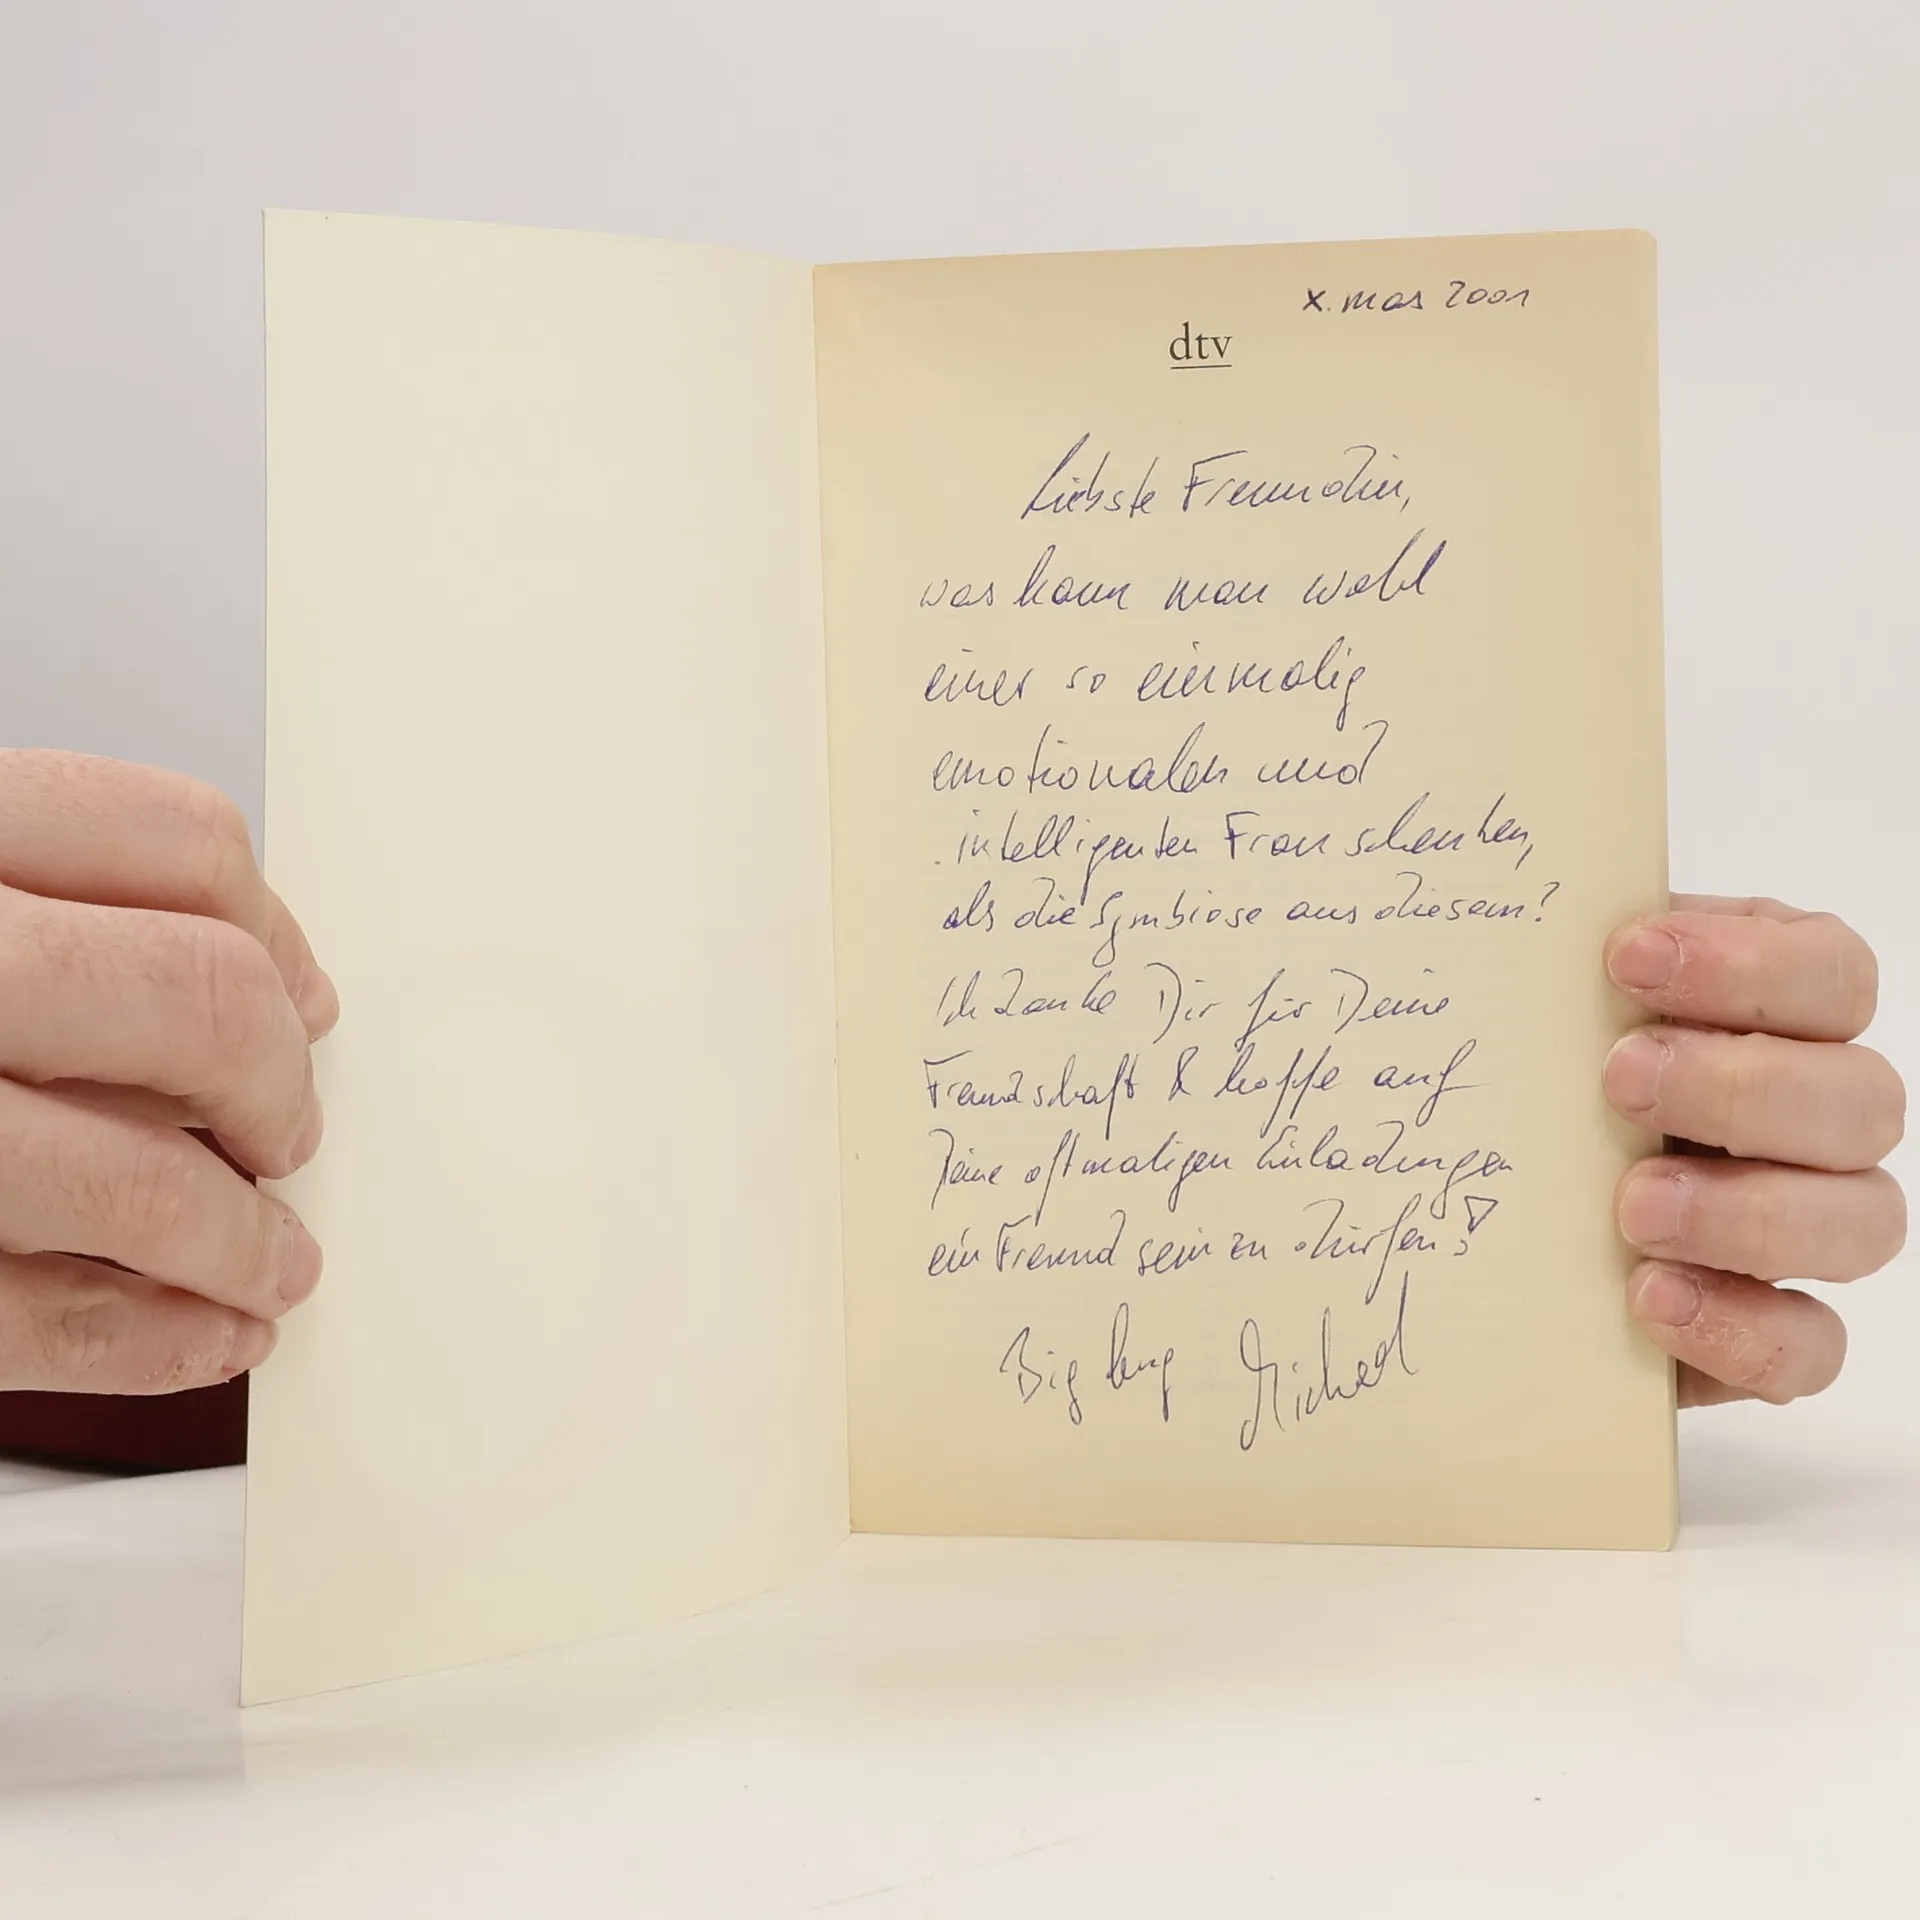 x.mas 2001
dtv
Liebste Freundin,
was kann man wohl
einer so einmalig
emotionalen und
intelligenten Frau schenken,
als die Symbiose aus diesem?
Ich danke Dir für Deine
Freundschaft & hoffe auf
Deine oftmaligen Einladungen
ein Freund sein zu dürfen!
Big hug Michael